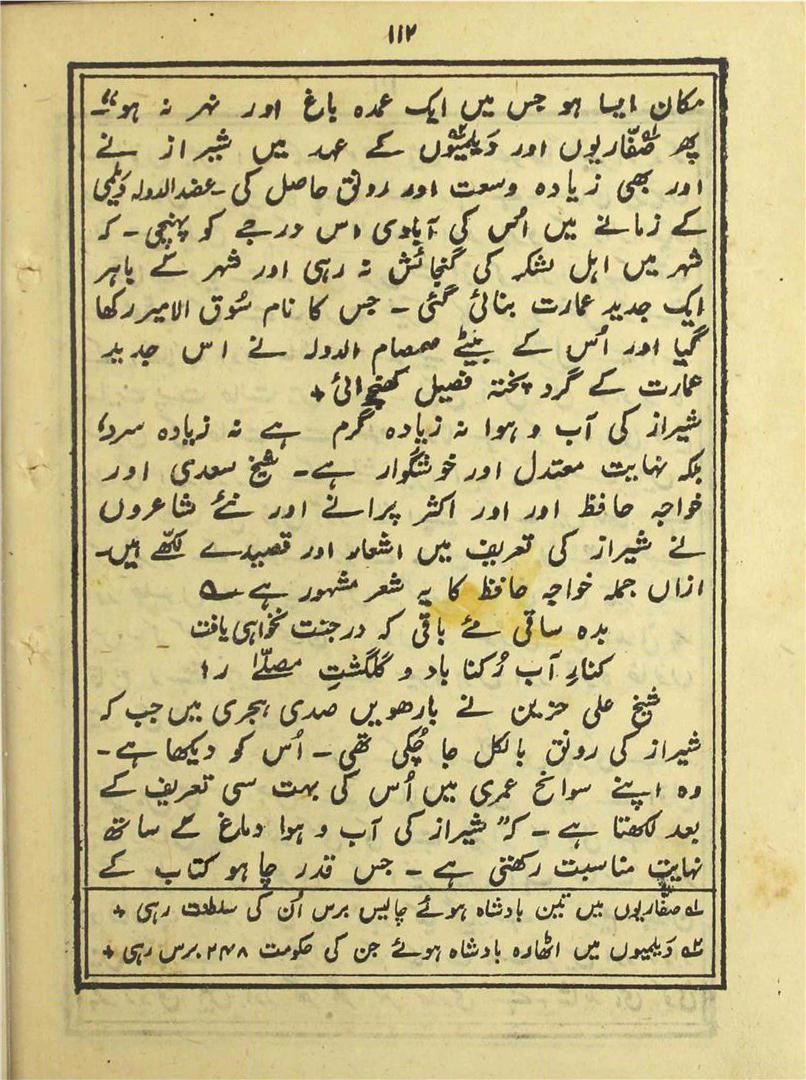 ۱۱۲
مکان ایسا ہو جس میں ایک عمدہ باغ اور نہر نہ ہو"۔
پھر صفّاریوں۱ اور دَیلمیوں۲ کے عہد میں شیراز نے
اور بھی زیادہ وسعت اور رونق حاصل کی۔ عضد الدولہ دَیلمی
کے زمانے میں اُس کی آبادی اس درجے کو پہنچی۔ کہ
شہر میں اہل لشکر کی گنجائش نہ رہی اور شہر کے باہر
ایک جدید عمارت بنائی گئی ۔ جس کا نام سُوق الامیر رکھا
گیا اور اُس کے بیٹے صمصام الدولہ نے اس جدید
عمارت کے گرد پختہ فصیل کھنچوائی +
شیراز کی آب و ہوا نہ زیادہ گرم ہے نہ زیادہ سرد،
بلکہ نہایت معتدل اور خوشگوار ہے۔ شیخ سعدی اور
خواجہ حافظ اور اور اکثر پرانے اور نئے شاعروں
نے شیراز کی تعریف میں اشعار اور قصیدے لکھّے ہیں۔
ازاں جملہ خواجہ حافظ کا یہ شعر مشہور ہے ؎
بدہ ساقی مئے باقی کہ در جنت نخواہی یافت
کنارِ آب رُکنا باد و گلگشتِ مصلّےٰ را
شیخ علی حزین نے بارھویں صدی ہجری میں جب کہ
شیراز کی رونق بالکل جا چُکی تھی ۔ اُس کو دیکھا ہے۔
وہ اپنے سوانح عمری میں اُس کی بہت سی تعریف کے
بعد لکھتا ہے ۔ کہ "شیراز کی آب و ہوا دماغ کے ساتھ
نہایت مناسبت رکھتی ہے ۔ جس قدر چاہو کتاب کے
۱؎ صفّاریوں میں تین بادشاہ ہوئے چالیس برس اُن کی سلطنت رہی +
۲؎ دَیلمیوں میں اٹھارہ بادشاہ ہوئے جن کی حکومت ۲۴۸ برس رہی +